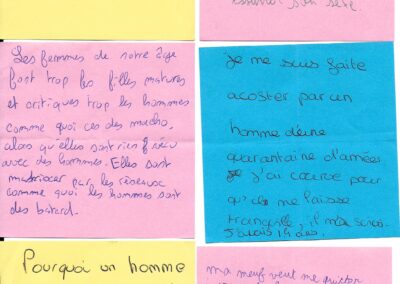 son sexe
Les femmes de notre âge
font trop les filles matures
et critiques trop les hommes
comme quoi ces des macho,
alors qu'elles sont rien
avec des hommes. Elles sont
par les réseaux
comme quoi les hommes sont
des batard.
Je me suis faite
acoster par un
homme d'une
quarantaine d'années
j'ai courue pour
qu'il me laisse
tranquille, il m'a
J'avais 14 ans.
Pourquoi un homme
ma meuf veut me quitter